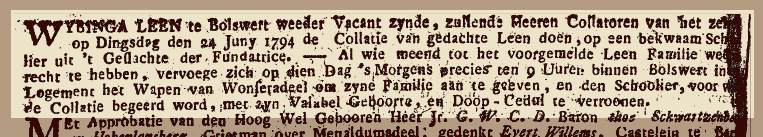 WYBINGA LEEN te Bolswert weeder Vacant zynde, zullende Heeren Collatoren van het
op Dingsdag den 24 Juny 1794 de Collatie van gedachte Leen doen, op een bekwaam
hier uit 't Geslachte der Fundatrice. — Al wie meend tot het voorgemelde Leen Familie
recht te hebben, vervoege zich op dien Dag 's Morgens precies ten 9 Uuren binnen Bolswert in
Logement het Wapen van Wonseradeel om zyne Familie aan te geeven, en den Schooier, voor
de Collatie begeerd word, met zyn Valabel Geboorte, en Doop-Cedul te vertoonen.
Met Approbatie van den Hoog Wel Gebooren Heer Jr. G. W. C. D. Baron thoe Schwartzenberg
Grietman over Menaldumadeel; gedenkt Evert Willems, Castelein te